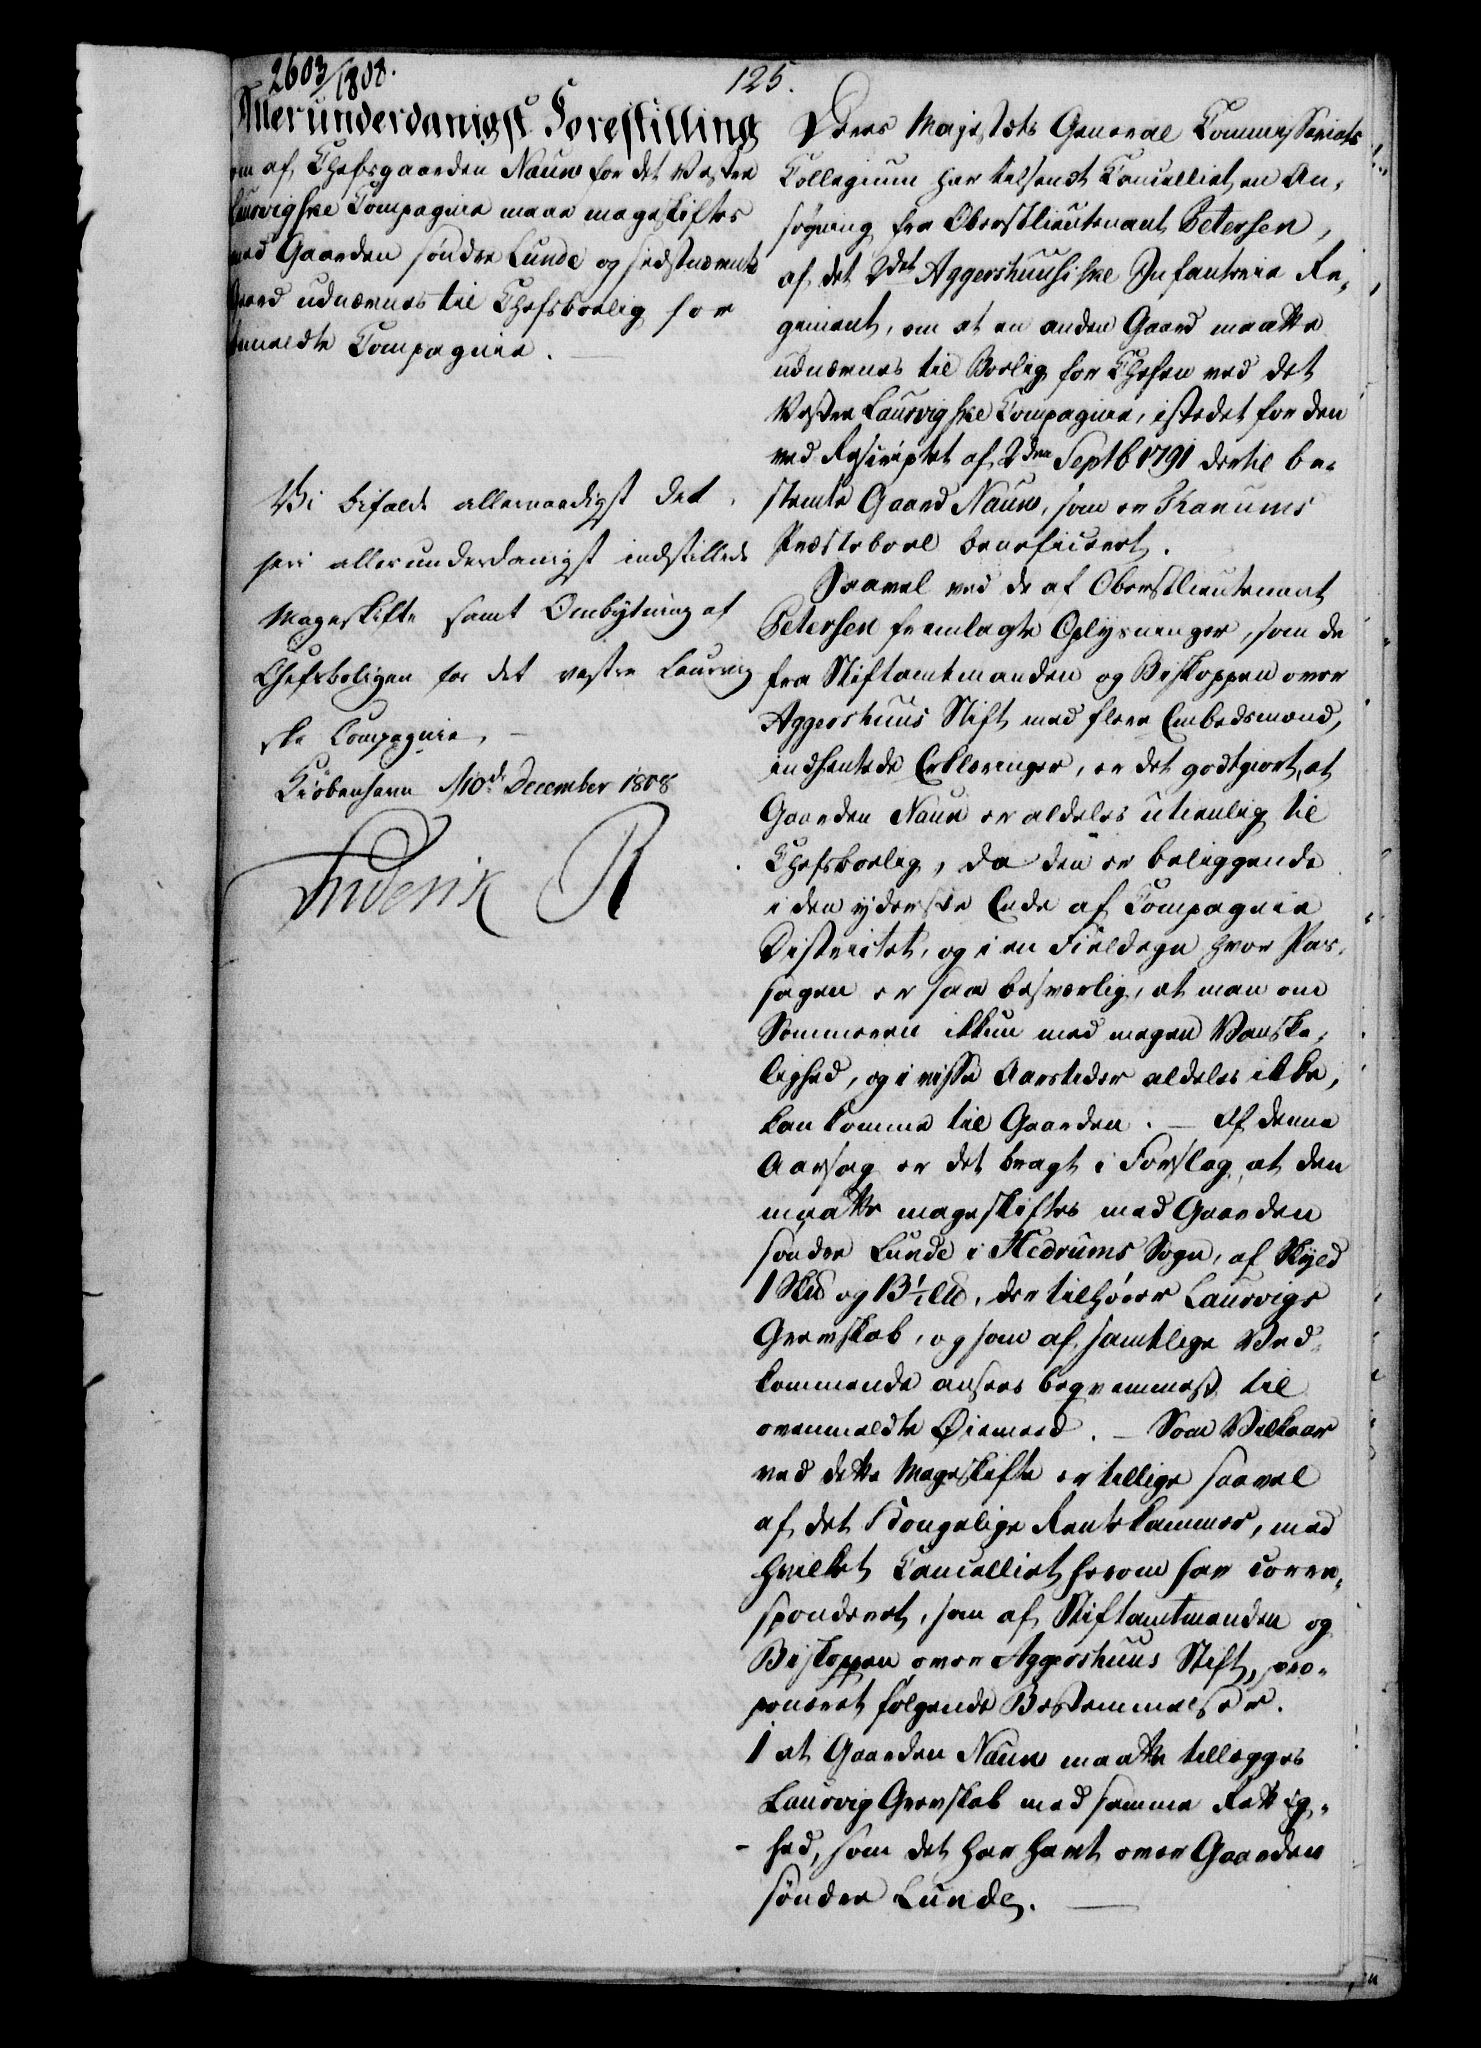 2603/1808.
125.
Allerunderdanigst Forestilling
om af Chefsgaarden Nauw for det Vestre
Laurvigske Compagnie maae mageskiftes
med Gaarden søndre Lunde og sidstnævnte
Gaard udnævnes til Chefsboelig for
bemeldte Compagnie.
Vi bifalde allernaadigst det
her allerunderdanigst indstillede
Mageskifte samt Ombytning af
Chefsboligen for det vestre Laurvig
ske Compagnie,
Kiøbenhavn d 10de December 1808
Frederik R
Deres Majestæts General Commissariats
Collegium har tilsendt Cancelliet en An-
søgning fra Oberstlieutenant Petersen,
af det 2det Aggershuusiske Infanterie Re-
giment, om at en anden Gaard maatte
udnævnes til Boelig for Chefen ved det
Vestre Laurvigske Compagnie, istedet for den
ved Rescriptet af 2den Septb 1791 dertil be-
stemte Gaard Nauw, som er Tkanums
Præsteboel beneficeret.
Saavel ved de af Oberstlieutenant
Petersen fremlagte Oplysninger, som de
fra Stiftamtmanden og Biskoppen over
Aggershuus Stift med flere Embedsmænd,
indhentede Erklæringer, er det godtgiort, at
Gaarden Nauw er aldeles utienlig til
Chefsboelig, da den er beliggende
i den yderste Ende af Compagnie
Districtet, og i en Fieldegn hvor Pas-
sagen er saa besværlig, at man om
Sommeren ikkun med megen Vanske-
lighed, og i visse Aarstider aldeles ikke,
kan komme til Gaarden. — Af denne
Aarsag er det bragt i Forslag, at den
maatte mageskiftes med Gaarden
søndre Lunde i Hedrums Sogn, af Skyld
1 Skd og 13½ Ld, der tilhører Laurvigs
Grevskab, og som af samtlige Ved-
kommende ansees beqvemmest til
ovenmeldte Øiemeed. — Som Vilkaar
ved dette Mageskifte er tillige saavel
af det Kongelige Rentekammer, med
hvilket Cancelliet herom har corre-
sponderet, som af Stiftamtmanden og
Biskoppen over Aggershuus Stift, pro-
poneret følgende Bestemmelser.
1 at Gaarden Nauw maatte tillægges
Laurvig Grevskab med samme Rettig-
hed, som det har havt over Gaarden
søndre Lunde. —